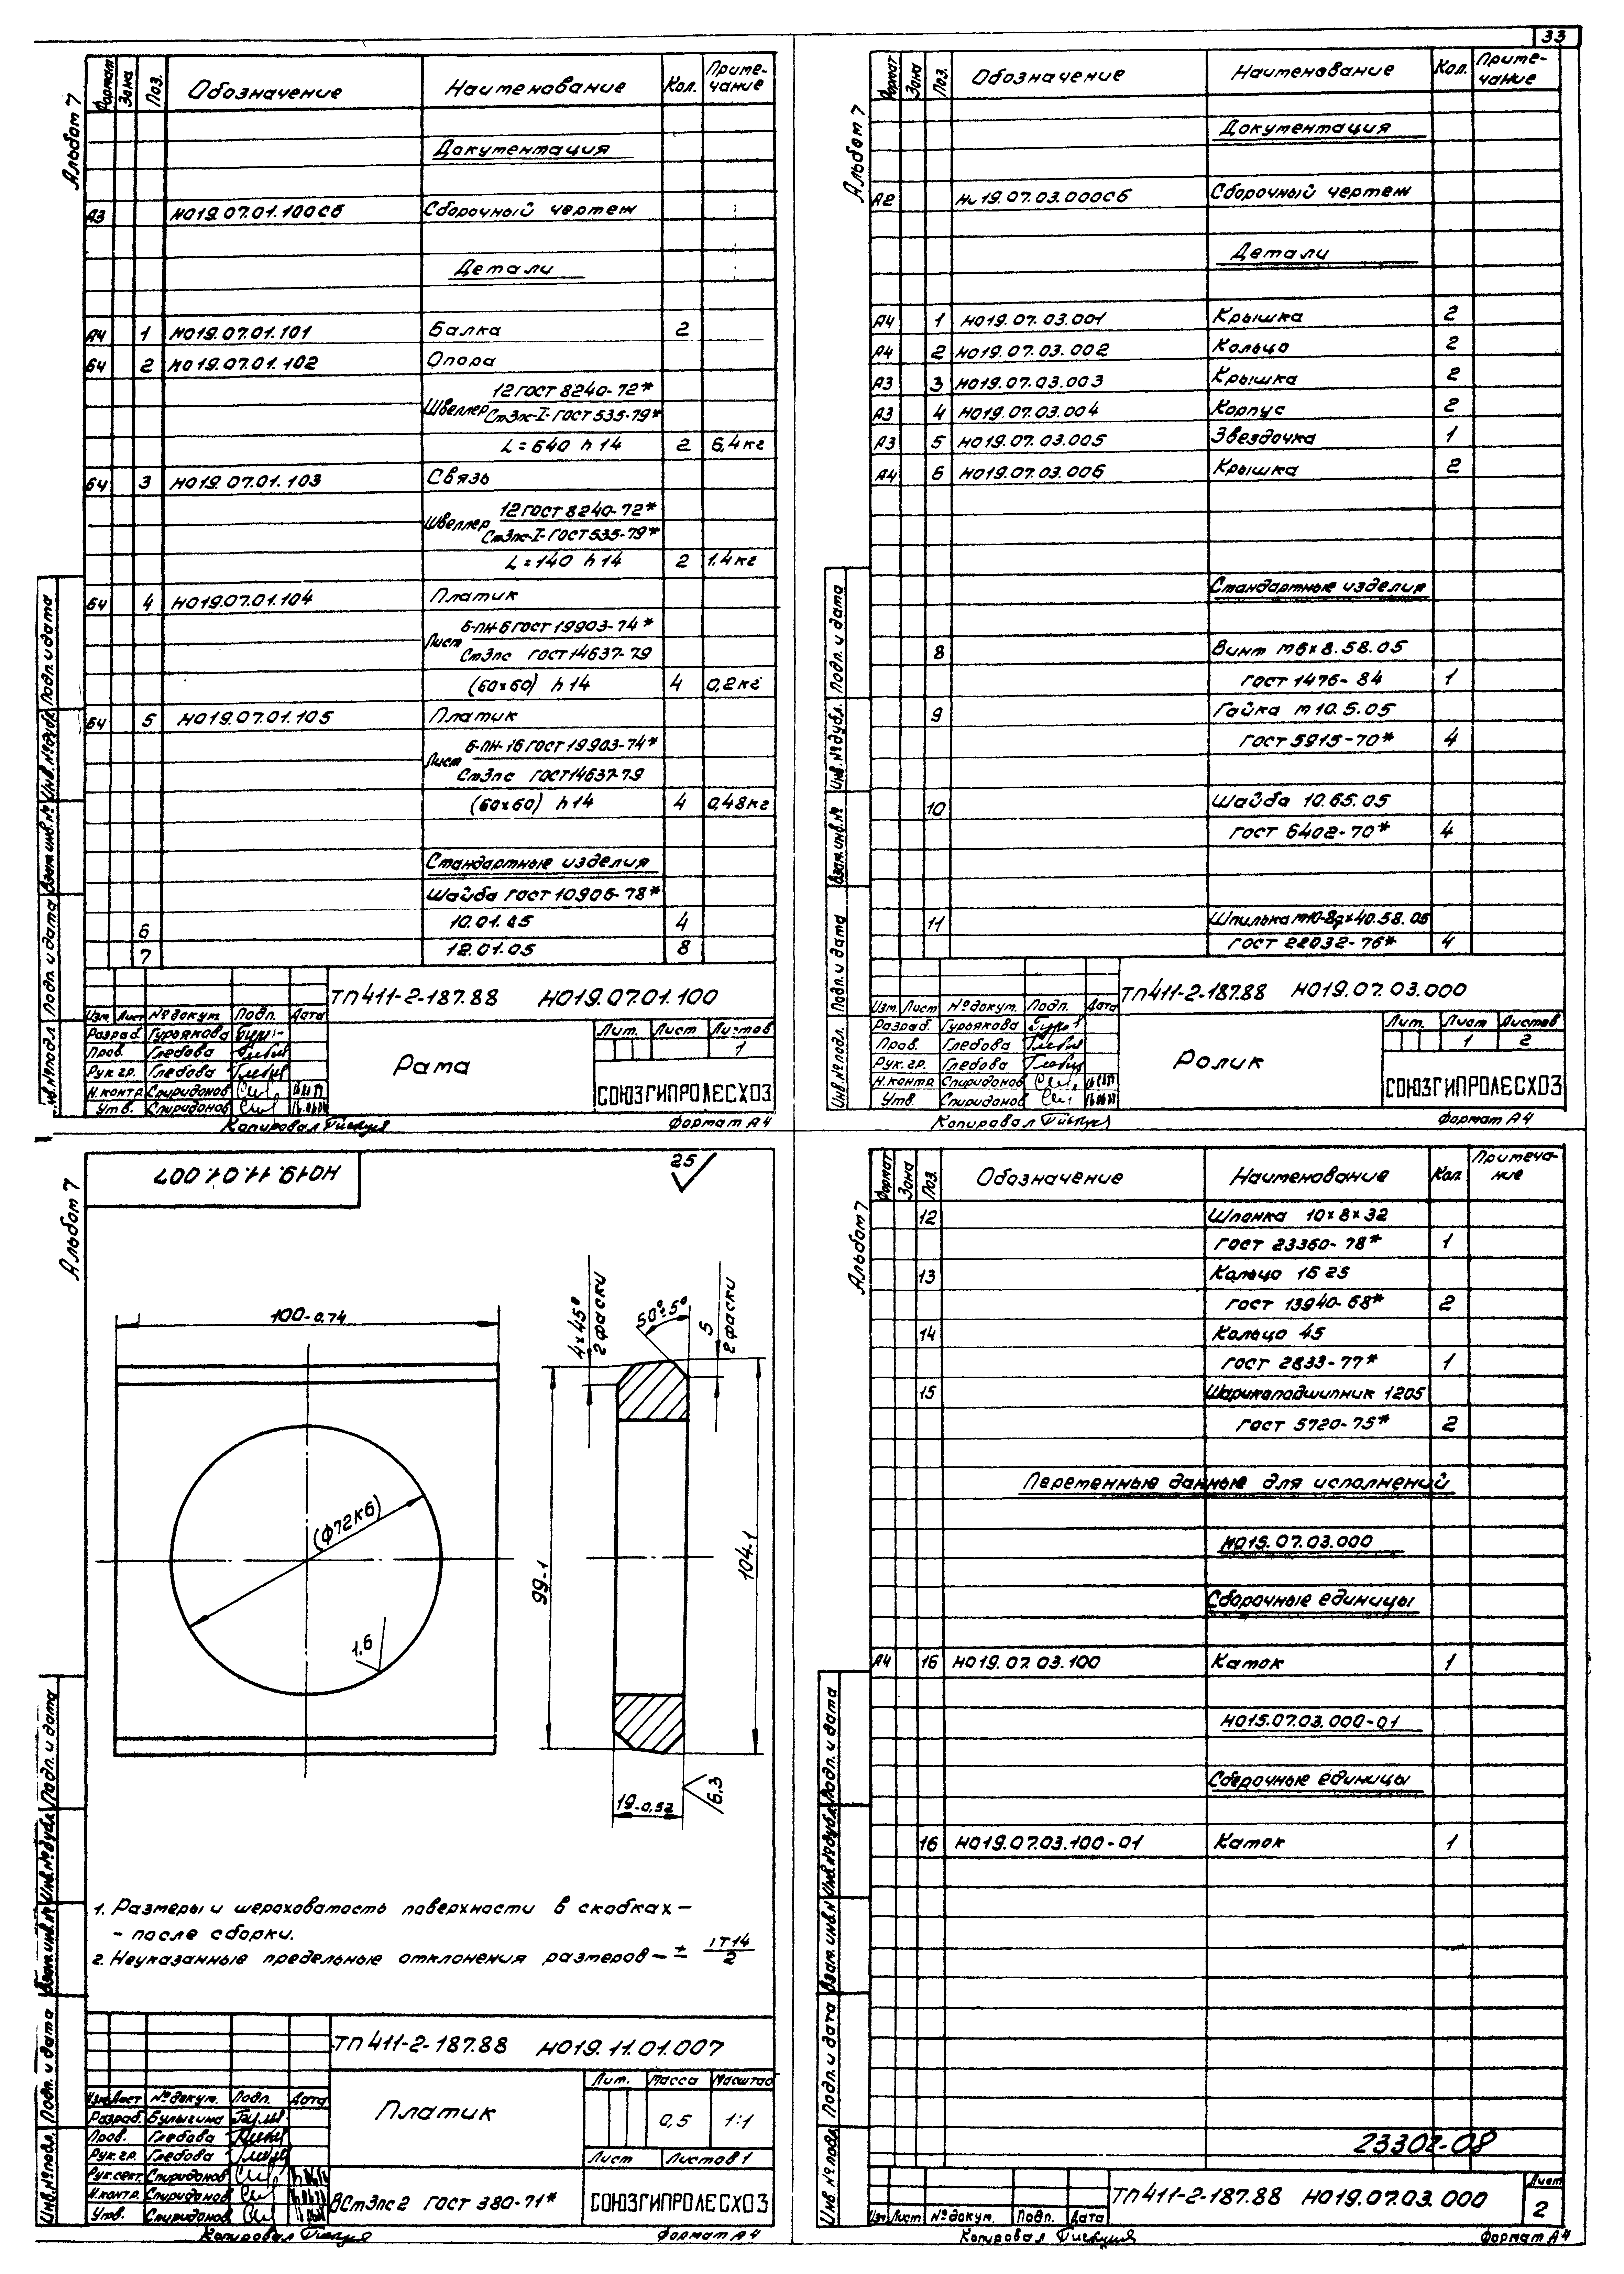 33
Альбом 7
Формат Зона Поз. Обозначение Наименование Кол. Приме-
чание
Документация
А3 НО19.07.01.100СБ Сборочный чертеж
Детали
А4 1 НО19.07.01.101 Балка 2
БЧ 2 НО19.07.01.102 Опора
12 ГОСТ 8240-72*
Швеллер Ст3пс-I-ГОСТ 535-79*
L=640 h14 2 6,4кг
БЧ 3 НО19.07.01.103 Связь
12 ГОСТ 8240-72*
Швеллер Ст3пс-I-ГОСТ 535-79*
L=140 h14 2 1.4кг
БЧ 4 НО19.07.01.104 Платик
Б-ПН-6 ГОСТ 19903-74*
Лист Ст3пс ГОСТ 14637-79
(60×60) h14 4 0,2кг
БЧ 5 НО19.07.01.105 Платик
Б-ПН-16 ГОСТ 19903-74*
Лист Ст3пс ГОСТ 14637-79
(60×60) h14 4 0,48кг
Стандартные изделия
Шайба ГОСТ 10906-78*
6 10.01.05 4
7 12.01.05 8
ТП 411-2-187.88 НО19.07.01.100
Изм. Лист № докум. Подп. Дата
Разраб. Гурьякова
Пров. Глебова
Рук.гр. Глебова
Н.контр. Спиридонов
Утв. Спиридонов
Рама
Лит. Лист Листов
1
СОЮЗГИПРОЛЕСХОЗ
Копировал Формат А4
Инв.№ подл. Подп. и дата Взам.инв.№ Инв.№ дубл. Подп. и дата
Альбом 7
Формат Зона Поз. Обозначение Наименование Кол. Приме-
чание
Документация
А2 НО19.07.03.000СБ Сборочный чертеж
Детали
А4 1 НО19.07.03.001 Крышка 2
А4 2 НО19.07.03.002 Кольцо 2
А3 3 НО19.07.03.003 Крышка 2
А3 4 НО19.07.03.004 Корпус 2
А3 5 НО19.07.03.005 Звездочка 1
А4 6 НО19.07.03.006 Крышка 2
Стандартные изделия
8 Винт М6×8.58.05
ГОСТ 1476-84 1
9 Гайка М10.5.05
ГОСТ 5915-70* 4
10 Шайба 10.65.05
ГОСТ 6402-70* 4
11 Шпилька М10-8g×40.58.05
ГОСТ 22032-76* 4
ТП 411-2-187.88 НО19.07.03.000
Изм. Лист № докум. Подп. Дата
Разраб. Гурьякова
Пров. Глебова
Рук.гр. Глебова
Н.контр. Спиридонов
Утв. Спиридонов
Ролик
Лит. Лист Листов
1 2
СОЮЗГИПРОЛЕСХОЗ
Копировал Формат А4
Инв.№ подл. Подп. и дата Взам.инв.№ Инв.№ дубл. Подп. и дата
Альбом 7
НО19.11.01.007
25
100-0,74
4×45°
2 фаски
50°±5°
5
2 фаски
(Ф72К6)
1,6
99-1
104-1
19-0,52
6,3
1. Размеры и шероховатость поверхности в скобках -
- после сборки.
2. Неуказанные предельные отклонения размеров - ± IT14/2
ТП 411-2-187.88 НО19.11.01.007
Изм. Лист № докум. Подп. Дата
Разраб. Булыгина
Пров. Глебова
Рук.гр. Глебова
Рук.сект. Спиридонов
Н.контр. Спиридонов
Утв. Спиридонов
Платик
Лит. Масса Масштаб
0,5 1:1
Лист Листов 1
ВСт3пс2 ГОСТ 380-71*
СОЮЗГИПРОЛЕСХОЗ
Копировал Формат А4
Инв.№ подл. Подп. и дата Взам.инв.№ Инв.№ дубл. Подп. и дата
Альбом 7
Формат Зона Поз. Обозначение Наименование Кол. Примеча-
ние
12 Шпонка 10×8×32
ГОСТ 23360-78* 1
13 Кольцо 1Б 25
ГОСТ 13940-68* 2
14 Кольцо 45
ГОСТ 2833-77* 1
15 Шарикоподшипник 1205
ГОСТ 5720-75* 2
Переменные данные для исполнений
НО15.07.03.000
Сборочные единицы
А4 16 НО19.07.03.100 Каток 1
НО15.07.03.000-01
Сборочные единицы
16 НО19.07.03.100-01 Каток 1
23302-08
ТП 411-2-187.88 НО19.07.03.000
Лист
2
Изм Лист № докум. Подп. Дата
Копировал Формат А4
Инв.№ подл. Подп. и дата Взам.инв.№ Инв.№ дубл. Подп. и дата